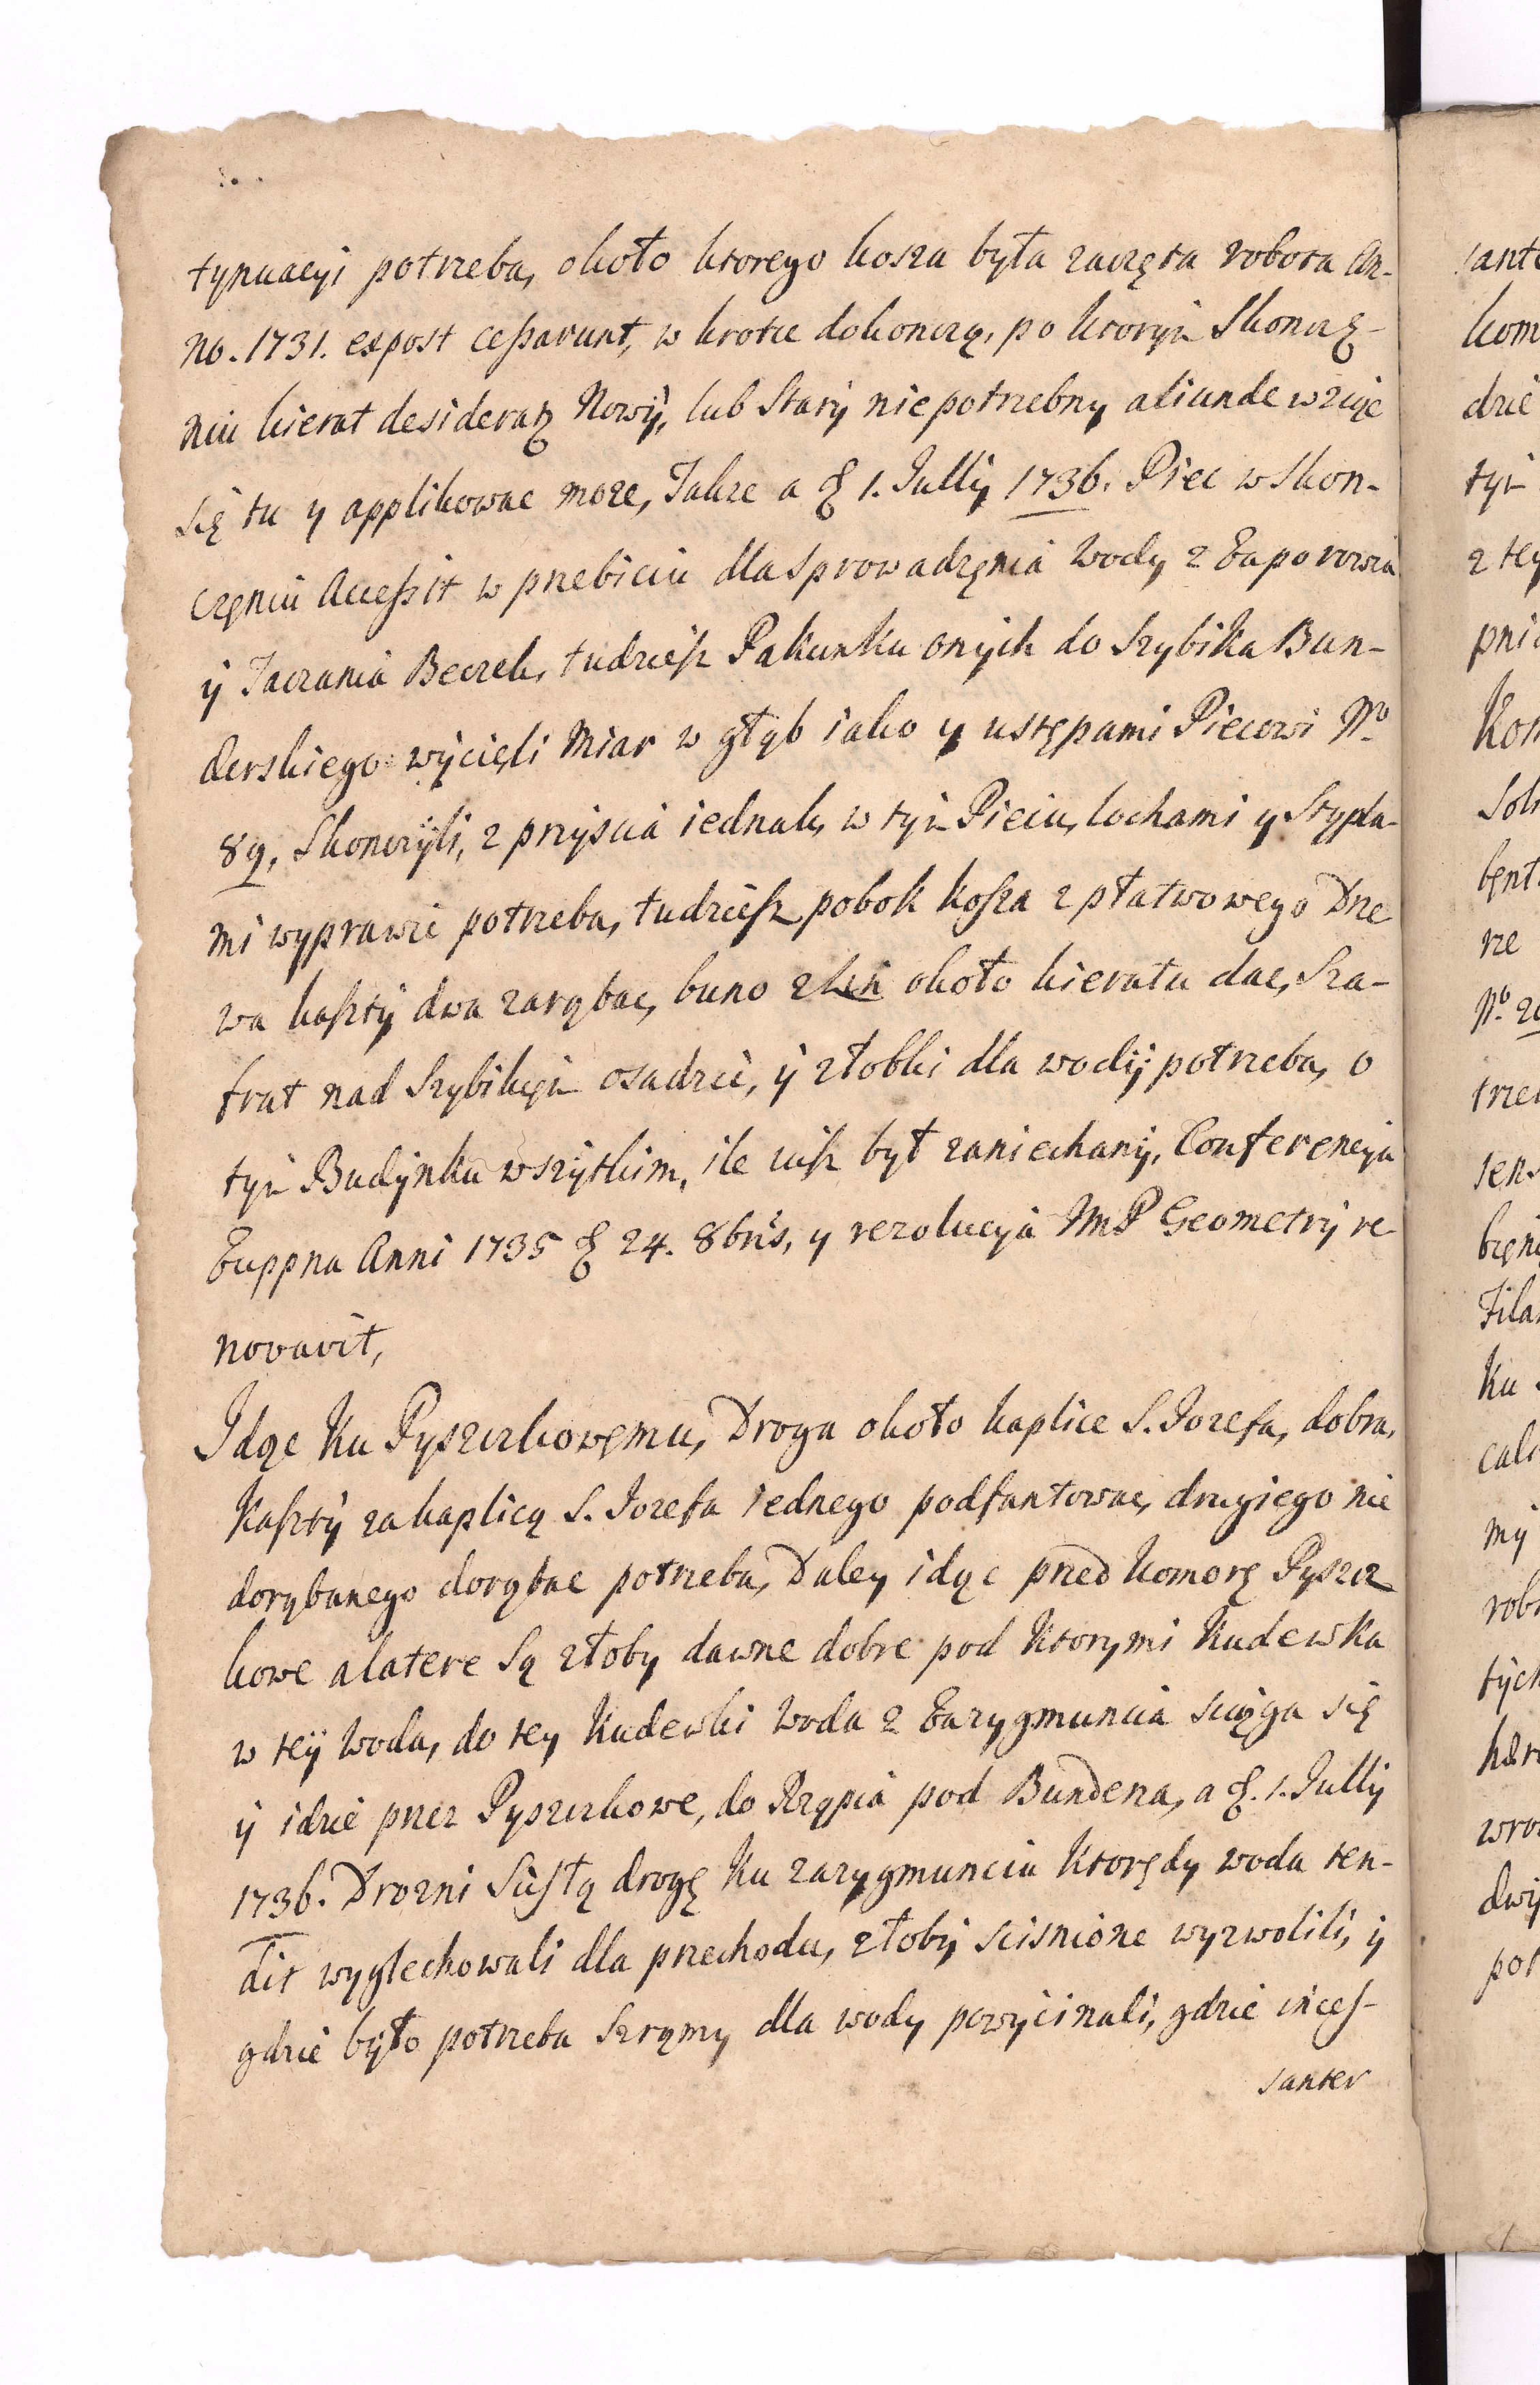 tynuacyi potrzeba, około ktorego kosza była zaczęta robota An-
no. 1731. expost cessarunt, w krotce dokonczą, po ktorym Skonczę-
niu kierat desiderat Nowy, lub Stary niepotrzebny aliunde wziąc
się tu y applikowac moze, Takze a 1. Julij 1736. Piec w Skon-
częniu Accessit w przebiciu dla Sprowadzęnia Wody z
y Taczania Beczek, tudziesz Pakunku onych do Szybika Bun-
derskiego wycięli Miar w głąb iako y ustępami Piecowi No
89, Skonczyli, z przyscia iednak, w tym Pieciu, lochami y Stępla-
mi wyprawic potrzeba, tudziesz pobok Kosza z płatwowego Drze
wa kaszty dwa zarąbac, buno około kieratu dac, Sza-
frat nad Szybikęm osadzic, y złobki dla wody potrzeba, o
tym Budynku wszytkim, ile iusz był zaniechany, Conferencya
Anni 1735 24. 8bris, y rezolucya JMP Geometry re
novavit,
Idąc Ku Pyszczkowęmu, Droga około kaplice S. Jozefa, dobra,
Kaszty za kaplicą S. Jozefa iednego podfantowac, drugiego nie
dorąbanego dorąbac potrzeba, Daley idąc przed Komorę Pyszcz
kowe a latere Są złoby dawne dobre pod Ktorymi Kadewka
w tey Woda, do tey Kadewki Woda z Zazygmuncia sciąga się
y idzie przez Pyszczkowe, do Rząpia pod Bundera, a 1. Julij
1736. Drozni Susłą drogę Ku zazygmunciu Ktorędy woda ten-
dit wyglechowali dla przechodu, złoby scisnione wyzwolili, y
gdzie było potrzeba Szramy dla wody powycinali, gdzie inces-
santer